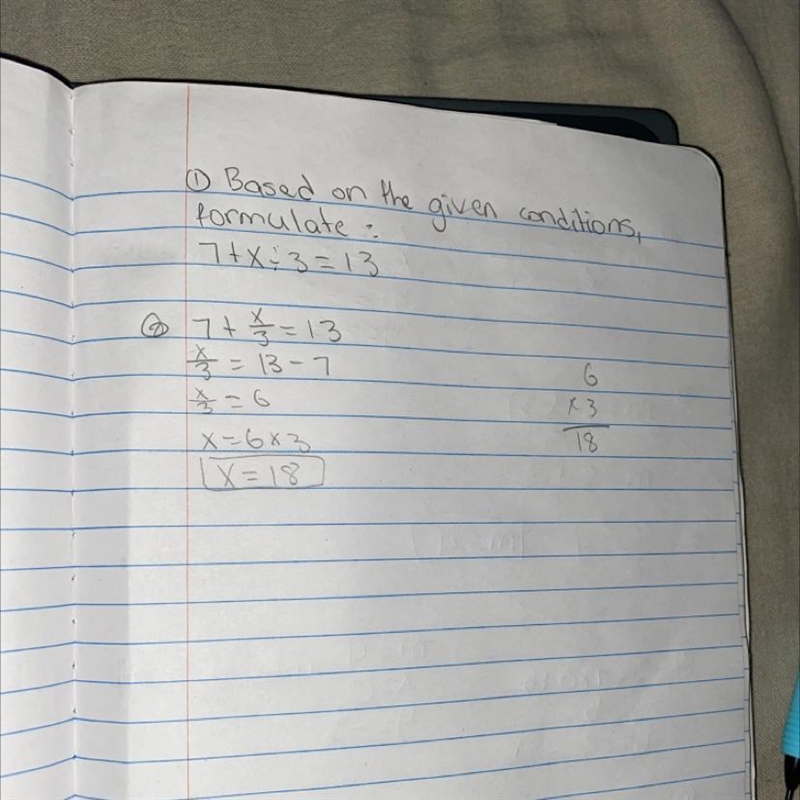 ① Based on the given conditions,
formulate :
7+x÷3=13
② 7 + x/3 = 13
x/3 = 13 - 7
x/3 = 6
x=6×3
x=18
6
×3
18